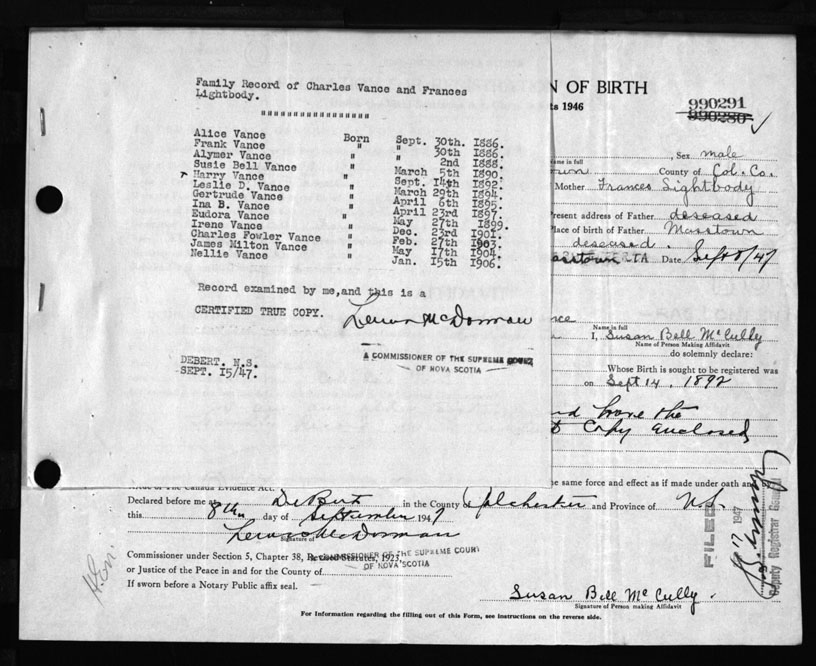 Family Record of Charles Vance and Frances
Lightbody.
"""""""""""""""""
Alice Vance Born Sept. 30th. 1886.
Frank Vance " " 30th 1886.
Alymer Vance " 2nd 1888.
Susie Bell Vance " March 5th 1890.
Harry Vance " Sept. 14th 1892.
Leslie D. Vance " March 29th 1894.
Gertrude Vance April 6th 1895.
Ina B. Vance " April 23rd 1897.
Eudora Vance " May 27th 1899.
Irene Vance " Dec. 23rd 1901.
Charles Fowler Vance " Feb. 27th 1903.
James Milton Vance " May 17th 1904.
Nellie Vance " Jan. 15th 1906.
Record examined by me,and this is a
CERTIFIED TRUE COPY.
A COMMISSIONER OF THE SUPREME COURT
OF NOVA SCOTIA
DEBERT. N.S.
SEPT. 15/47.
N OF BIRTH
ts 1946
990291
990280
, Sex male
ame in full
own County of Col. Co.
Mother Frances Lightbody
Present address of Father deseased
Place of birth of Father Masstown
deseased.
Date Sept 8/47
nce
Name in full
I, Susan Bell McCully
Name of Person Making Affidavit
do solemnly declare:
Whose Birth is sought to be registered was
on Sept 14, 1892
Copy enclosed
he same force and effect as if made under oath and
Canada Evidence Act.
Declared before me at DeBert in the County Colchester and Province of N.S.
this 8th day of September 1947
Signature of
Commissioner under Section 5, Chapter 38, Revised Statutes, 1923,
COMMISSIONER OF THE SUPREME COURT
OF NOVA SCOTIA
or Justice of the Peace in and for the County of
If sworn before a Notary Public affix seal.
FILED
1947
Deputy Registrar General
Susan Bell McCully.
Signature of Person making Affidavit
For Information regarding the filling out of this Form, see instructions on the reverse side.